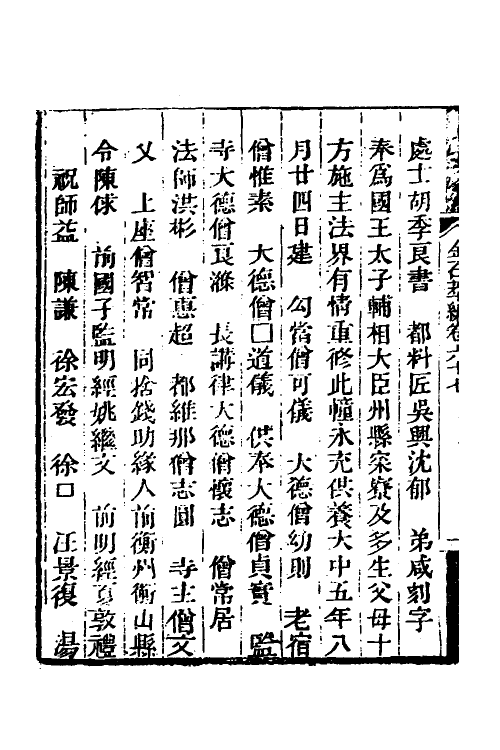 金石萃編卷六十七
處士胡季良書　都料匠吳興沈郁　弟咸刻字
奉爲國王太子輔相大臣州縣寀寮及多生父母十
方施主法界有情重修此幢永充供養大中五年八
月廿四日建　勾當僧可儀　大德僧幼則　老宿
僧惟素　大德僧□道儀　供奉大德僧貞實　監
寺大德僧良滌　長講律大德僧懷志　僧常居
法師洪彬　僧惠超　都維那僧志圓　寺主僧文
父　上座僧智常　同捨錢助緣人前衡州衡山縣
令陳俅　前國子監明經姚繼文　前明經夏敦禮
祝師益　陳謙　徐宏發　徐□　汪景復　湯